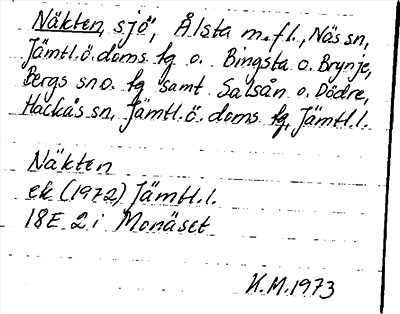 Näkten, sjö, Ålsta m.fl., Näs sn,
Jämtl.ö.doms fg o. Bingsta o. Brynje,
Bergs sn o. fg samt Salsån o. Dödre,
Hackås sn, Jämtl.ö.doms fg, Jämtl.l.
Näkten
ek (1972) Jämtl.l.
18E 2 i Monäset
K.M. 1973